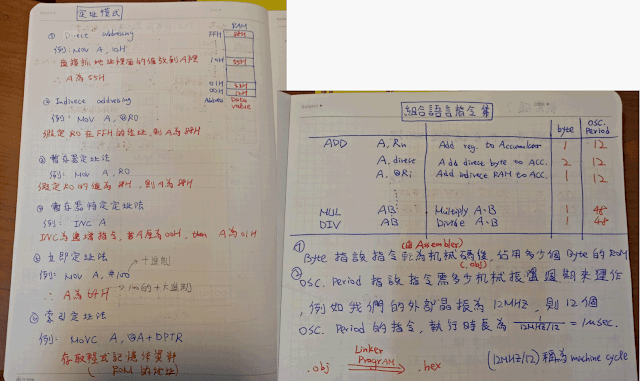 定址模式
① Direct addressing
例: MOV A, 10H
直接抓地址裡面的值放到A裡
∴ A為 55H
② Indirect addressing
例: MOV A, @R0
假定 R0 在 FFH 的位址, 則 A為
③ 暫存器定址法
例: MOV A, R0
假定 R0 的值為 , 則 A為
④ 暫存器特定定址法
例: INC A
INC為遞增指令, 若A原為00H, then A為01H
⑤ 立即定址法
例: MOV A, #100
十進制
∴ A為 64H
100的十六進制
⑥ 索引定址法
例: MOVC A, @A+DPTR
存取程式記憶體資料
( ROM 的地址)
RAM
FFH
10H 55H
01H
00H
Address Data value
組合語言指令集
byte OSC. Period
ADD A, Rn Add reg. to Accumulator 1 12
A, direct Add direct byte to ACC. 2 12
A, @Ri Add indirect RAM to ACC. 1 12
MUL AB Multiply A·B 1 48
DIV AB Divide A·B 1 48
(由 Assembler)
① Byte 指該指令転為机械碼後, 佔用多少個 Byte 的 ROM
(.obj)
② OSC. Period 指該指令需多少机械振盪週期來運作
, 例如我們的外部晶振為 12MHz, 則 12個
OSC. Period 的指令, 執行時長為 1/(12MHz/12) = 1μsec.
Linker
.obj → .hex
Program
(12MHz/12) 稱為 machine cycle